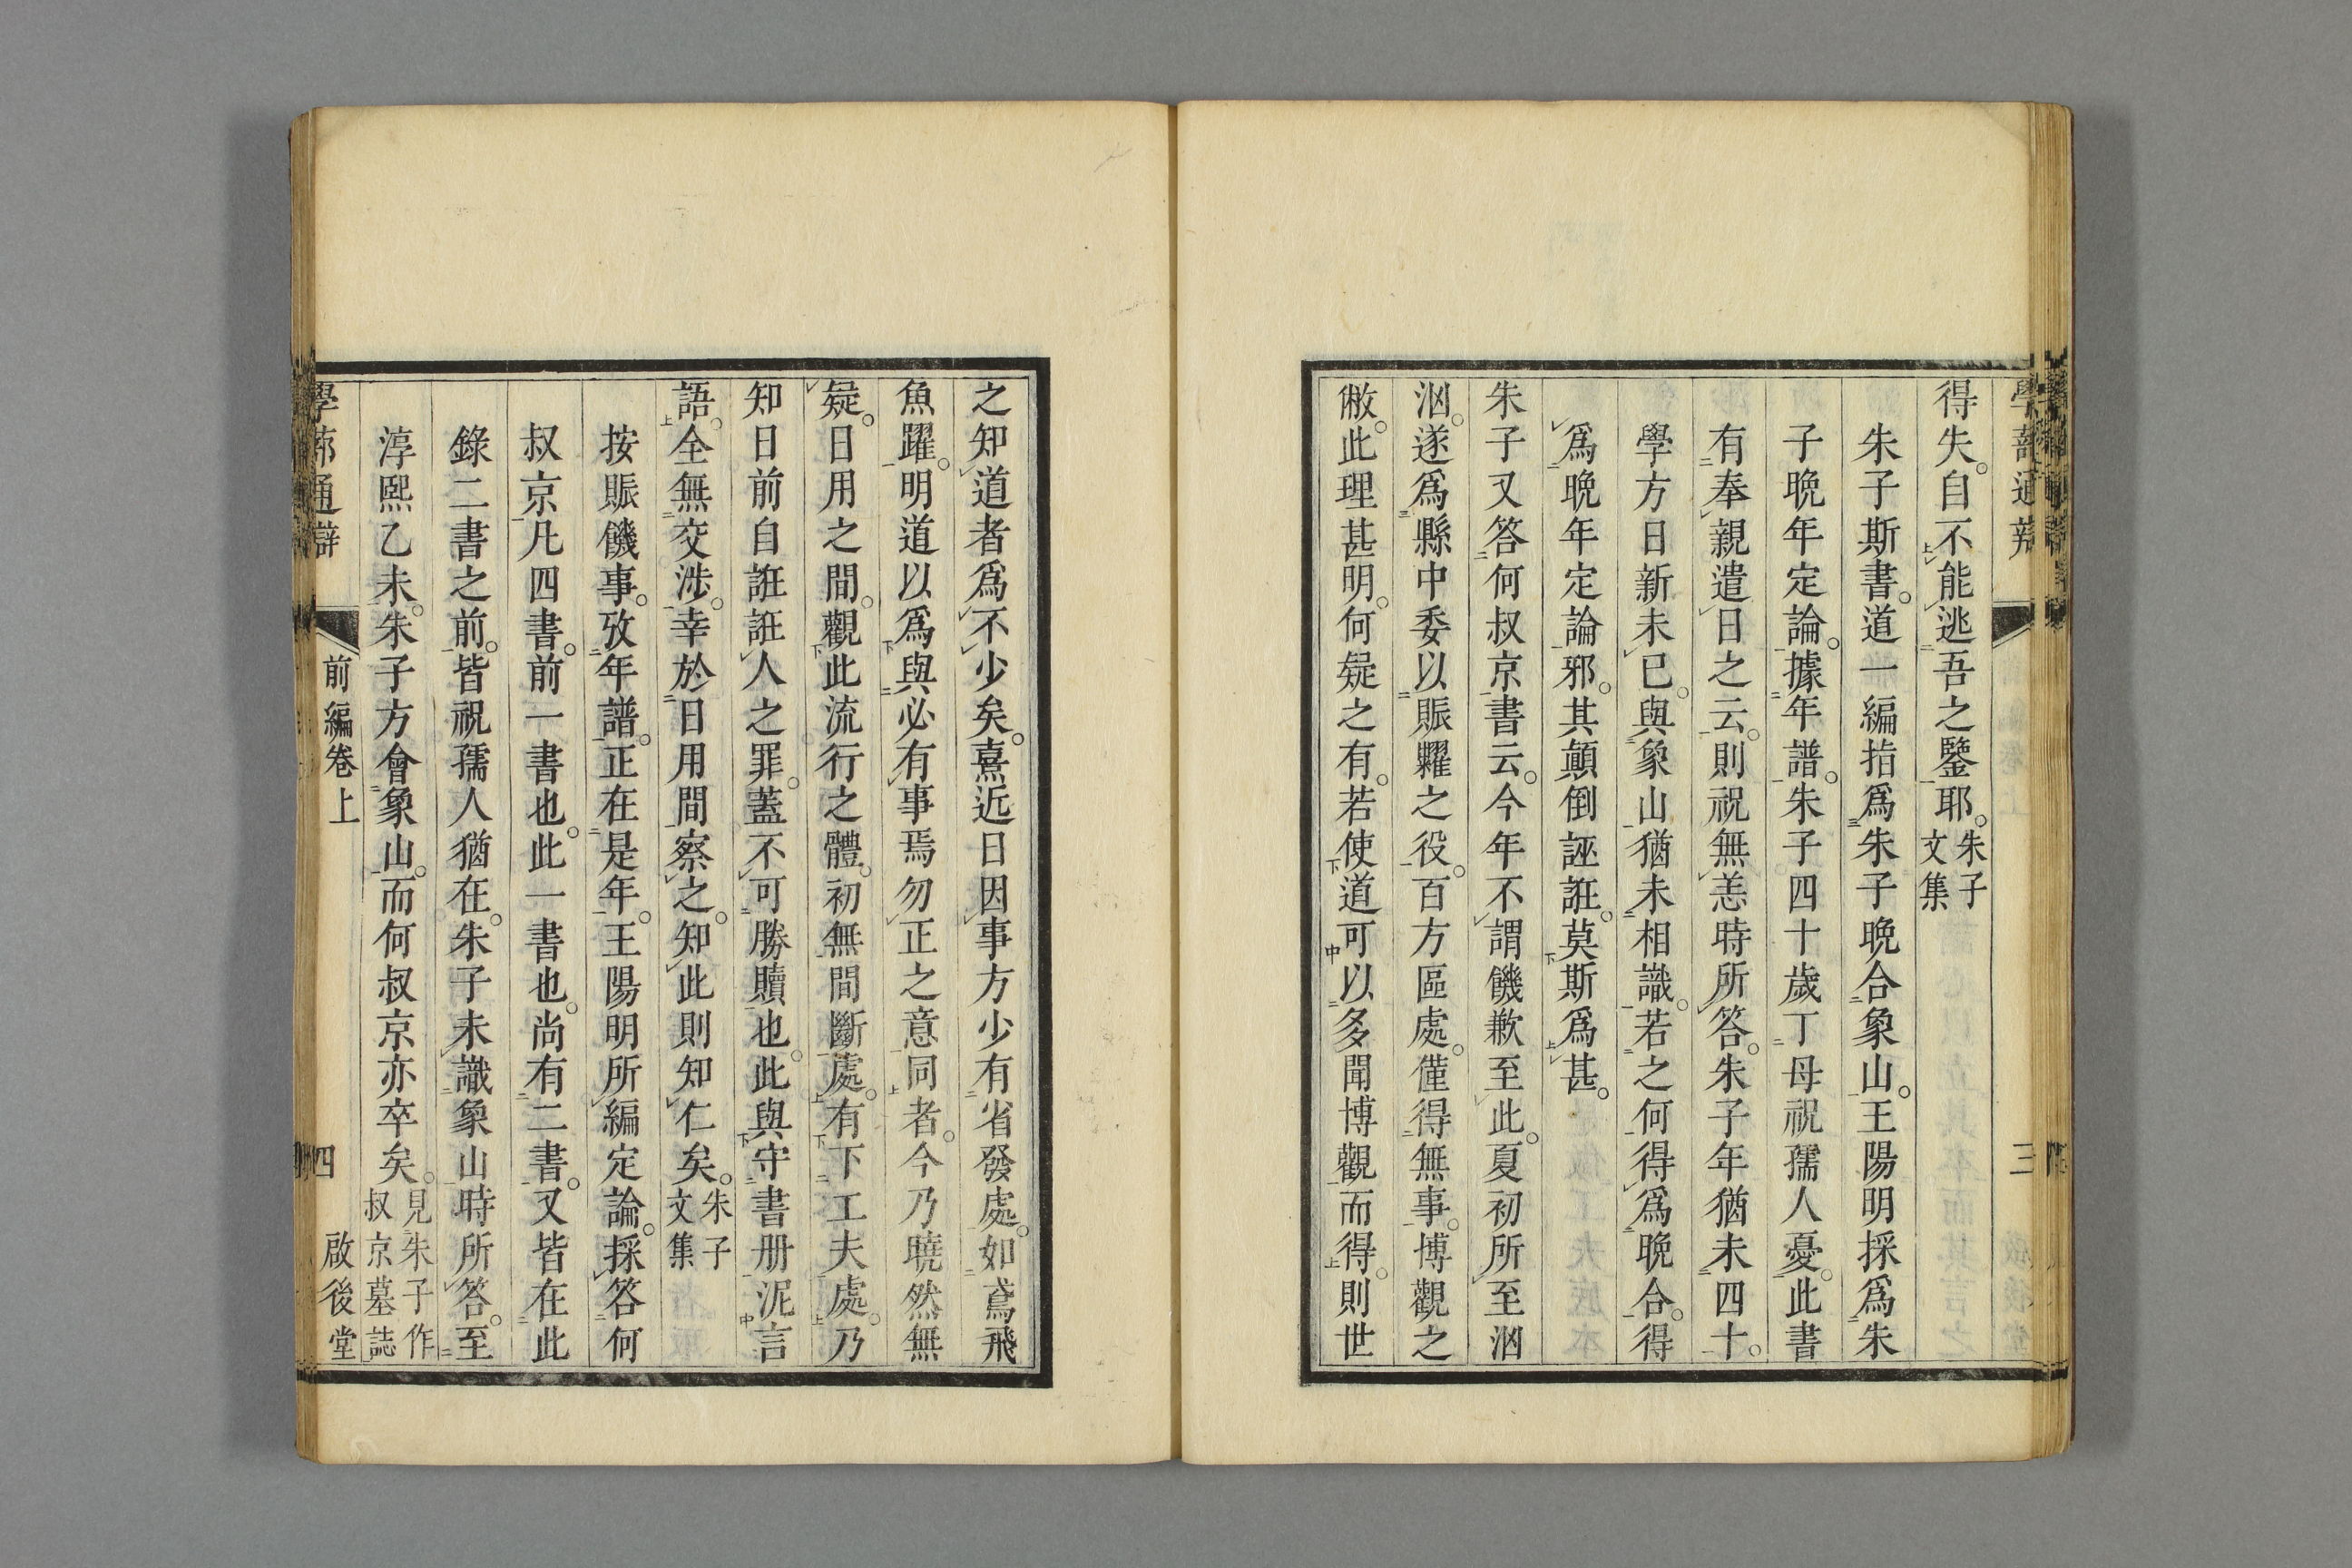 學蔀通辨
三
得失。自不能逃吾之鑒耶。朱子文集
朱子斯書。道一編指爲朱子晚合象山。王陽明採爲朱
子晚年定論。據年譜。朱子四十歲丁母祝孺人憂。此書
有奉親遣日之云。則祝無恙時所答。朱子年猶未四十。
學方日新未已。與象山猶未相識。若之何得爲晚合。得
爲晚年定論邪。其顛倒誣誑。莫斯爲甚。
朱子又答何叔京書云。今年不謂饑歉至此。夏初所至汹
汹。遂爲縣中委以賑糶之役。百方區處。僅得無事。博觀之
敝。此理甚明。何疑之有。若使道可以多聞博觀而得。則世
之知道者爲不少矣。熹近日因事方少有省發處。如鳶飛
魚躍。明道以爲與必有事焉勿正之意同者。今乃曉然無
疑。日用之間。觀此流行之體。初無間斷處。有下工夫處。乃
知日前自誑誑人之罪。蓋不可勝贖也。此與守書册泥言
語。全無交涉。幸於日用間察之。知此則知仁矣。朱子文集
按賑饑事。攷年譜。正在是年。王陽明所編定論。採答何
叔京凡四書。前一書也。此一書也。尚有二書。又皆在此
錄二書之前。皆祝孺人猶在。朱子未識象山時所答。至
淳熙乙未。朱子方會象山。而何叔京亦卒矣。見朱子作叔京墓誌
學蔀通辯
前編卷上
四
啟後堂